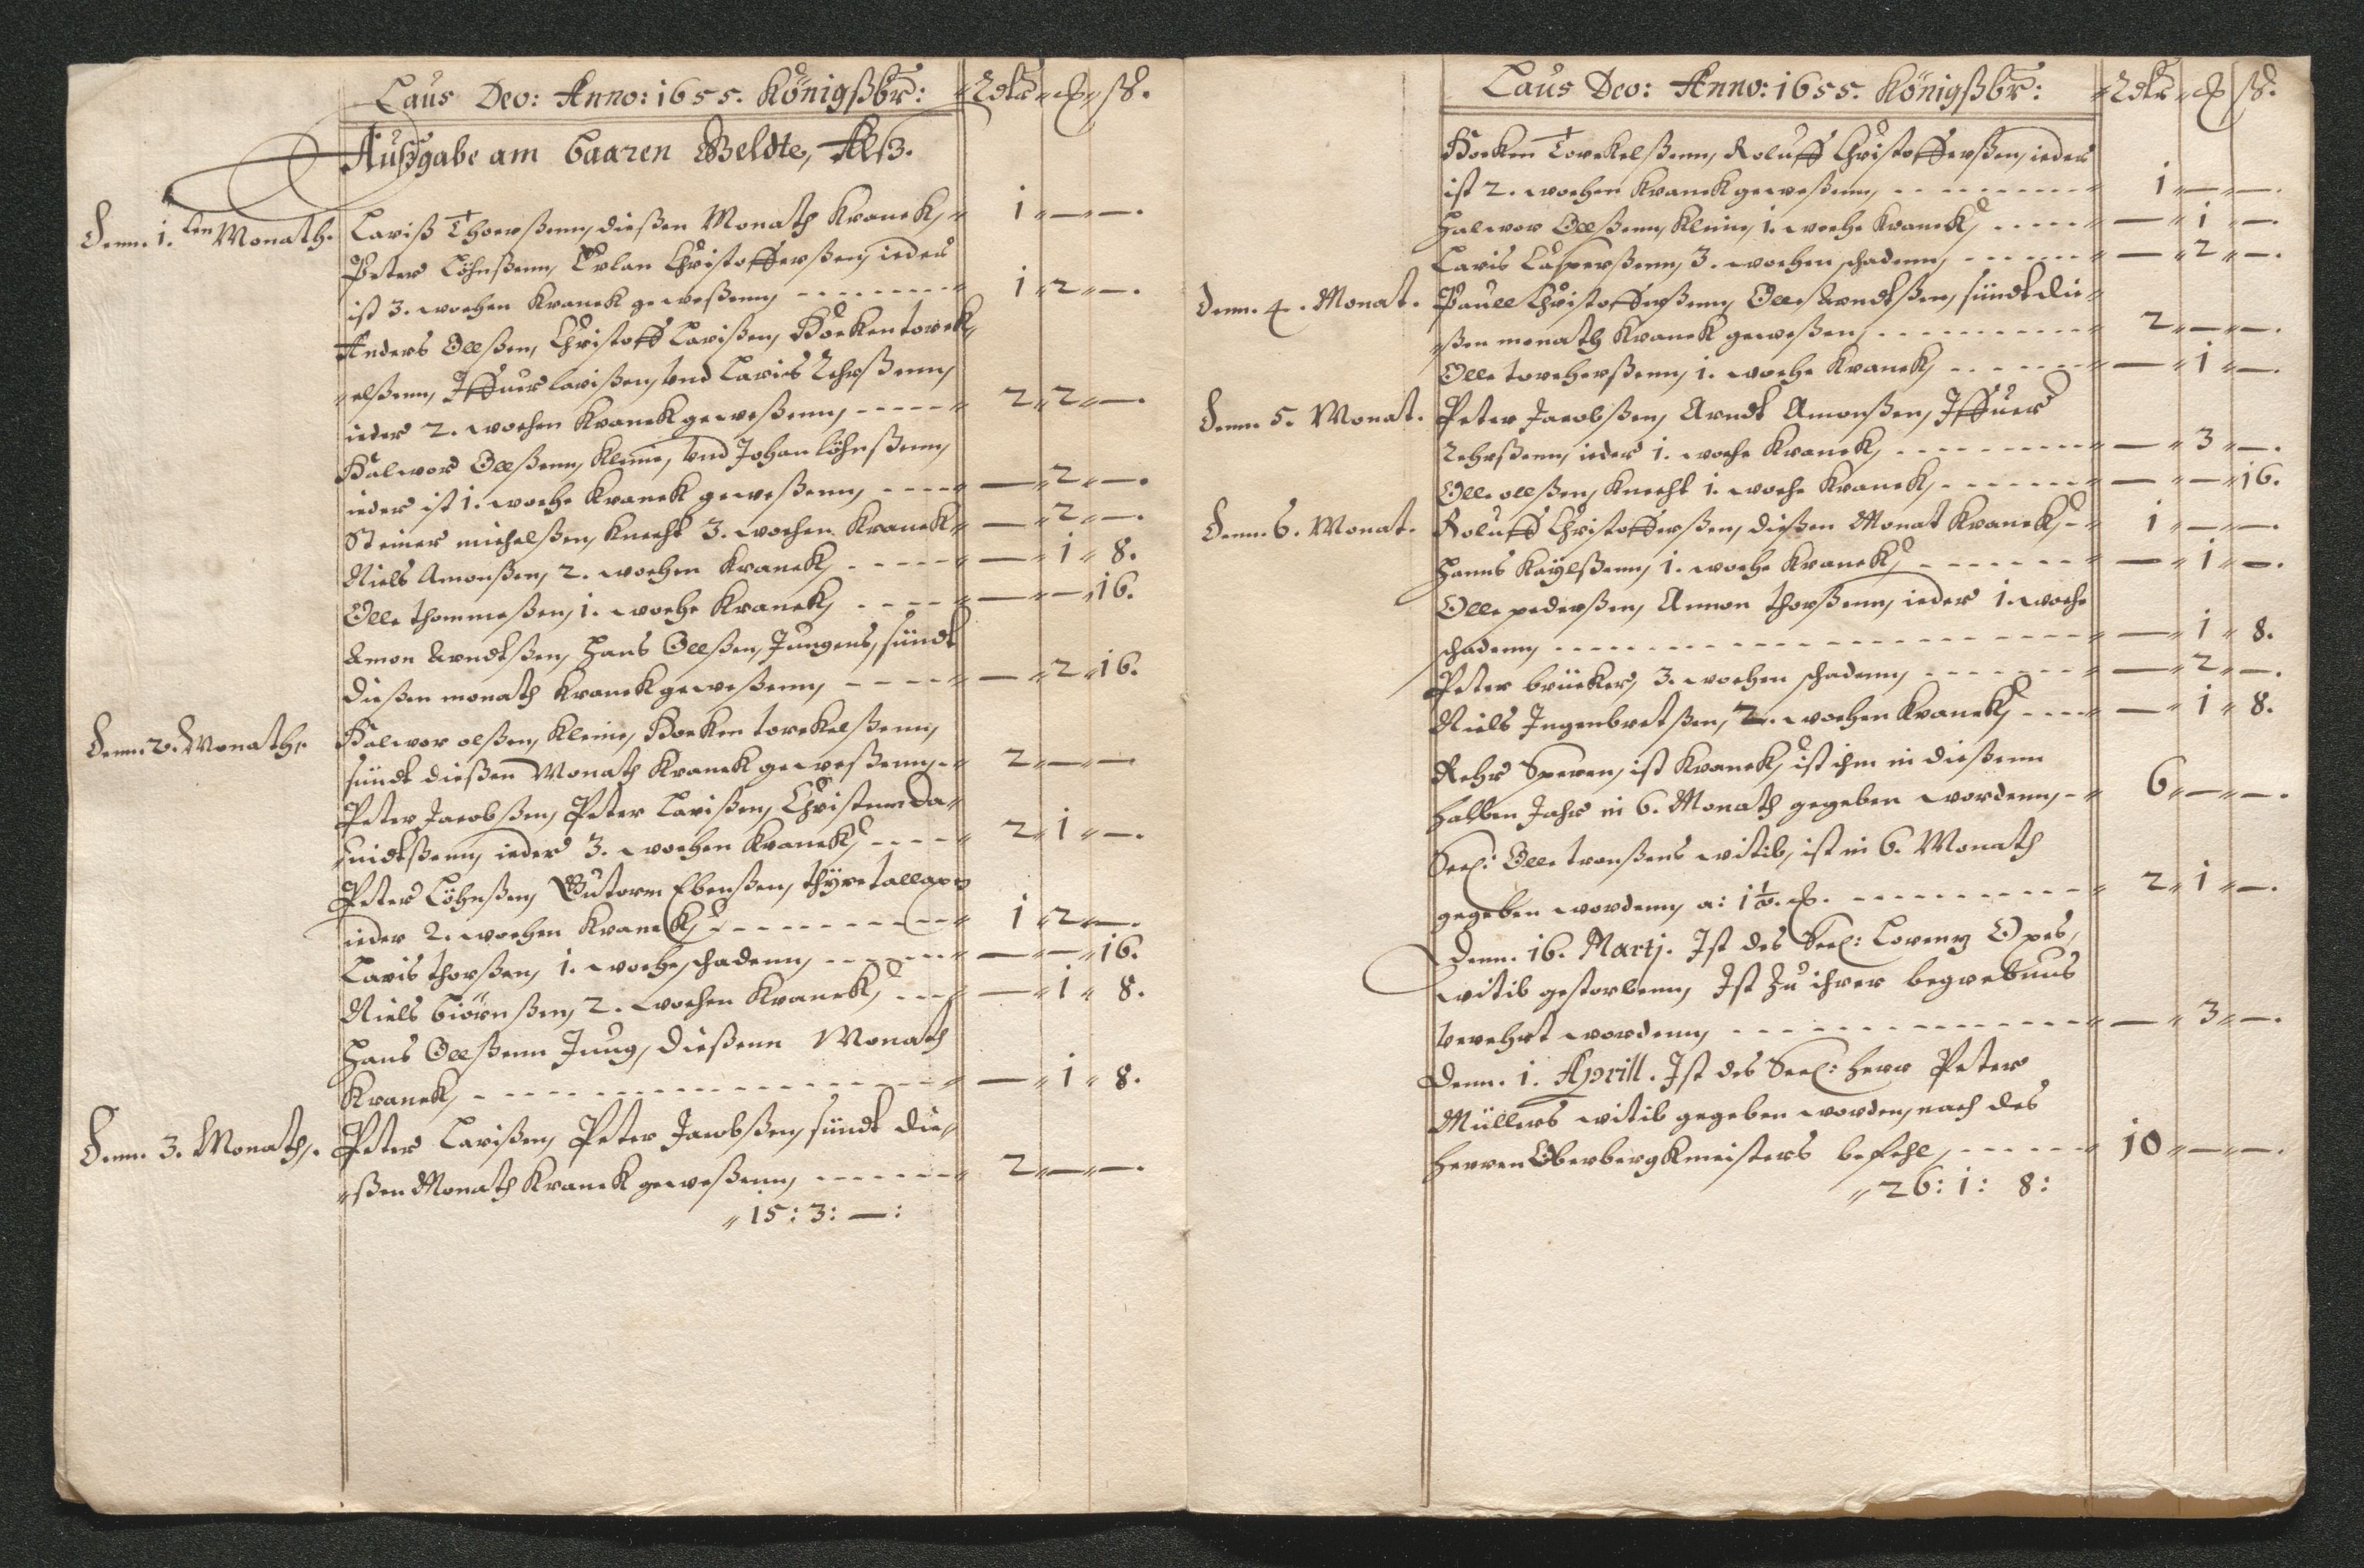 Laus Deo: Anno: 1655. Königßbr: Rdtr ß.
Außgabe am baaren Geldte, Alß.
Denn. 1.ten Monath. Lariß Thorerßenn, dießen Monath Kranck, 1 — —.
Peter Löhnßenn, Erlan Christofferßen, ieder
ist 3. wochen Kranck geweßenn, 1 2 —.
Anders Ollßen, Christoff Larißen, Boeken torck„
„elßenn, Iffuer larißen, vnd Laries Rehrßenn,
ieder 2. wochen Kranck geweßenn, 2 2 —.
Halwor Ollßenn, Kleine, vnd Johan löhnßenn,
ieder ist 1. woche Kranck geweßenn, — 2 —.
Steiner michelßen, Knecht 3. wochen Kranck — 2 —.
Niels Amonßen, 2. wochen Kranck, — 1 8.
Olle thommeßen, 1. woche Kranck, — — 16.
Amon Arndtßen, Hans Ollßen, Jungens, sündt
dießen monath Kranck geweßenn, — 2 16.
Denn. 2. Monath. Halwor olßen, Kleine, Boeken torckelßenn,
sündt dießen Monath Kranck geweßenn, 2 — —
Peter Jacobßen, Peter Larißen, Christenn Da„
„uidtßenn, ieder 3. wochen Kranck, 2 1 —.
Peter Löhnßen, Gutorm Ebenßen,
ieder 2. wochen Kranck, 1 2 —.
Laris thorßen, 1. woche, schadenn, — — 16.
Niels biörnßen, 2. wochen Kranck, — 1 8.
Hans Ollßenn Jung, dießenn Monath
Kranck, — 1 8.
Denn. 3. Monath. Peter Larißen, Peter Jacobßen, sündt die„
„ßen Monath Kranck geweßenn, 2 — —.
„15: 3: —:
Laus Deo: Anno: 1655. Königßbr: Rdtr ß.
Boeken Torckelßenn, Roluff Christofferßen, ieder
ist 2. wochen Kranck geweßenn, 1 — —.
Halwor Ollßenn, Kleine, 1. woche Kranck, — 1 —.
Laris Casperßenn, 3. wochen schadenn, — 2 —.
Denn. 4. Monat. Paull Christofferßenn, Olle Arndtßen, sündt die„
„ßen monath Kranck geweßen, 2 — —.
Olle torcherßenn, 1. woche Kranck, — 1 —.
Denn. 5. Monat. Peter Jacobßen, Arndt Amonßen, Iffuer
Rehrßenn, ieder 1. woche Kranck, — 3 —.
Olle ollßen, Knecht 1. woche Kranck, — — 16.
Denn. 6. Monat. Roluff Christofferßen, dießen Monat Kranck, 1 — —.
Hanns Kaÿlßenn, 1. woche Kranck, — 1 —.
Olle pederßen, Amon thorßenn, ieder 1. woche
schadenn, — 1 8.
Peter brücker, 3. wochen schadenn, — 2 —.
Niels Ingenbretßen, 2. wochen Kranck, — 1 8.
Rehr Speren, ist Kranck, ist ihm in dießenn
halben Jahr in 6. Monath gegeben wordenn, 6 — —.
Seel: Olle tronßens witib, ist in 6. Monath
gegeben wordenn, a: 1½ 2 1 —.
Denn. 16. Martj. Ist des Seel: Lorentz Opes,
witib gestorbenn, Ist Zu ihrer begrebnus
verehrt wordenn, — 3 —.
Denn. 1. Aprill. Ist des Seel: herr Peter
Müllers witib gegeben worden, nach des
herren Oberbergkmeisters befehl, 10 — —.
„26: 1: 8: